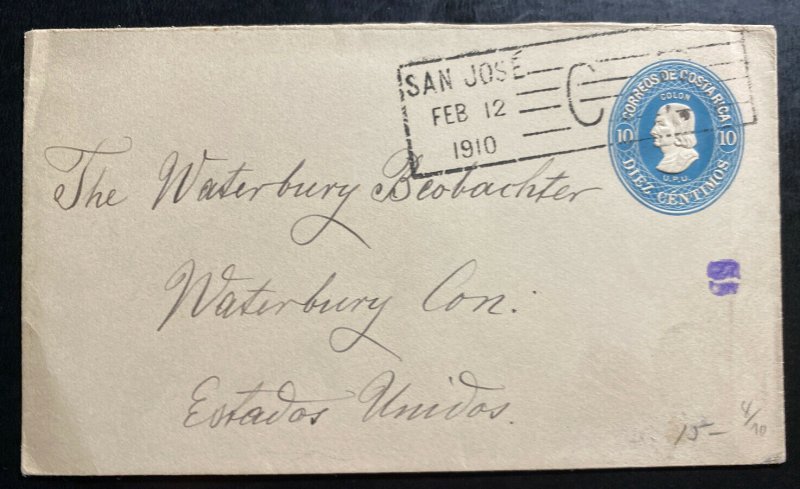 SAN JOSÉ
FEB 12
1910
C
CORREOS DE COSTA RICA
COLON
10 10
U.P.U.
DIEZ CENTIMOS
The Waterbury Beobachter
Waterbury Con:
Estados Unidos.
15— 4/10